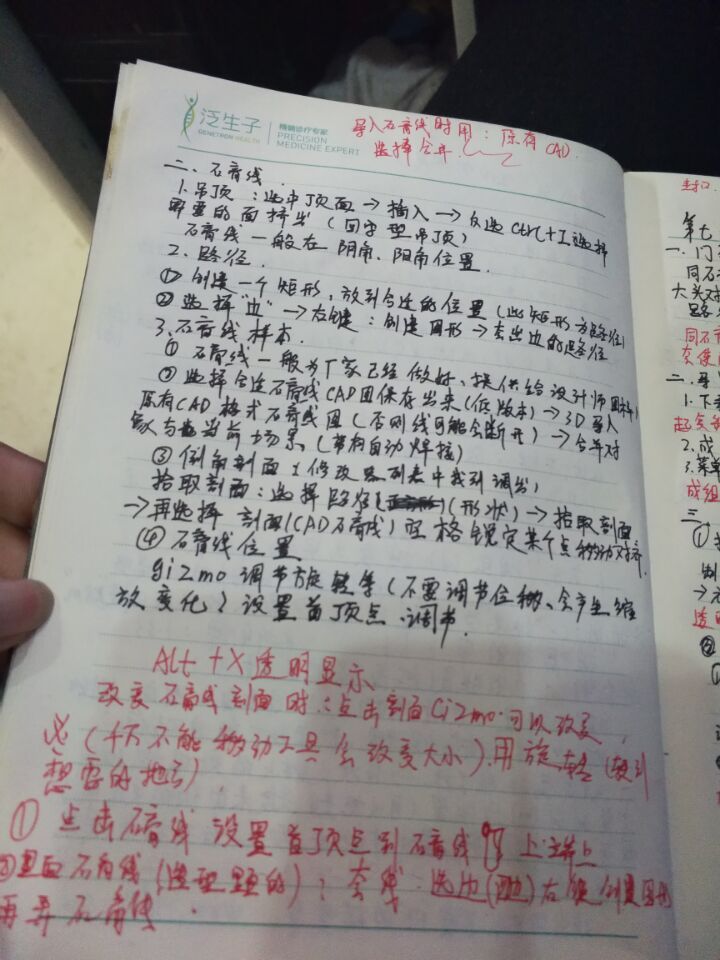 泛生子
GENETRON HEALTH
精确诊疗专家
PRECISION
MEDICINE EXPERT
导入石膏线时用：原有CAD
选择合并.
二、石膏线.
1.吊顶：选中顶面→插入→反选 Ctrl+I 选择
需要的面挤出（回字型吊顶）
石膏线一般在阴角、阳角位置.
2.路径.
① 创建一个矩形，放到合适的位置（此矩形为路径）
② 选择"边"→右键：创建图形→套出边的路径
3.石膏线样本.
① 石膏线一般为厂家已经做好，提供给设计师图样
② 选择合适石膏线CAD图保存出来（低版本）→3D导入
原有CAD格式石膏线图（否则线可能会断开）→合并对
象与当前场景（带有自动焊接）
③ 倒角剖面（修改器列表中找到调出）
拾取剖面：选择路径（形状）→拾取剖面
→再选择剖面（CAD石膏线）网格锁定某个点移动对齐.
④ 石膏线位置
gizmo 调节旋转等（不要调节位移、会产生缩
放变化）设置首顶点调节.
Alt+X 透明显示
改变石膏线剖面时：点击剖面Gizmo可以改变
（千万不能移动工具会改变大小）用旋转（转到
想要的地方）
① 点击石膏线设置首顶点到石膏线 上端上
②里面石膏线（造型里的）：套线 选边（四边）右键创建图形
再弄石膏线.
封口
第七
一.门
同石
大头对
路
同石
二.
1.下
2.成
3.菜单
成组
三.
①
②